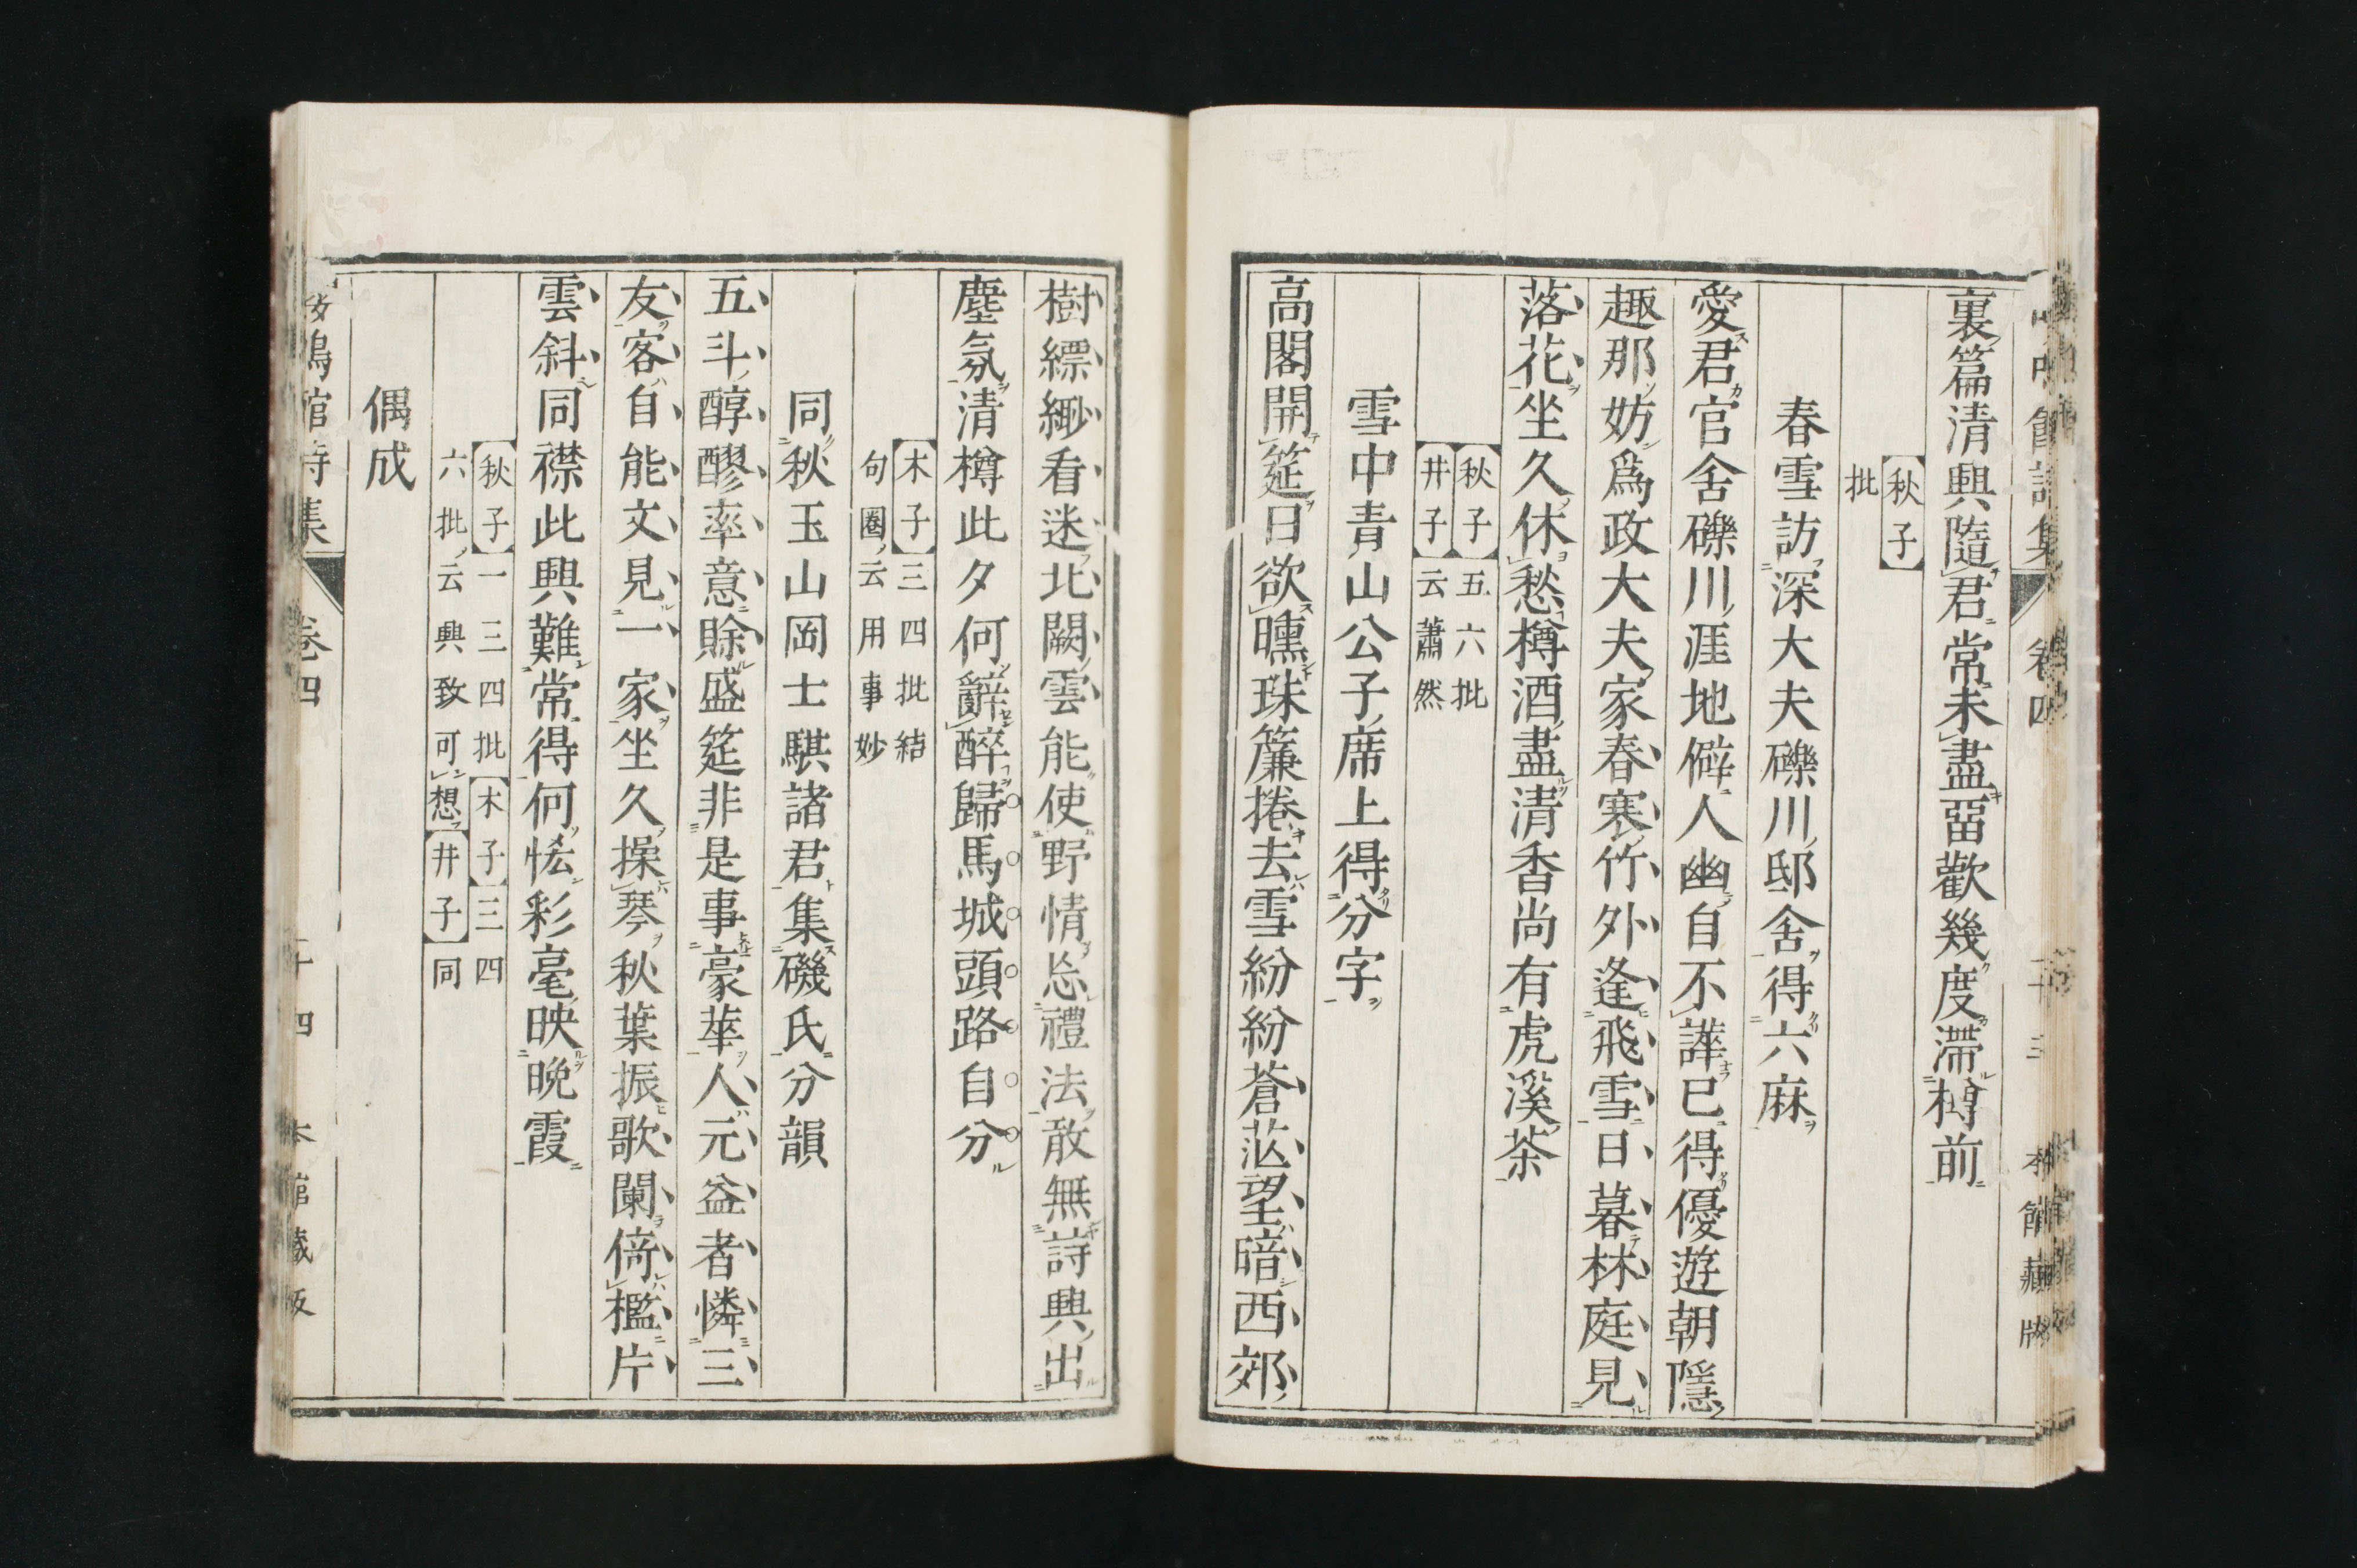 裏篇清興隨君常未盡畱歡幾度滯樽前
【秋子】
批
春雪訪深大夫礫川邸舍得六麻
愛君官舍礫川涯地僻人幽自不譁已得優遊朝隱
趣那妨爲政大夫家春寒竹外逢飛雪日暮林庭見
落花坐久休愁樽酒盡清香尚有虎溪茶
【秋子】五六批
【井子】云蕭然
雪中青山公子席上得分字
高閣開筵日欲曛珠簾捲去雪紛紛蒼茫望暗西郊
樹縹緲看迷北闕雲能使野情忘禮法敢無詩興出
塵氛清樽此夕何辭醉歸馬城頭路自分
【木子】三四批結
句圈云用事妙
同秋玉山岡士騏諸君集磯氏分韻
五斗醇醪率意賖盛筵非是事豪華人元益者憐三
友客自能文見一家坐久操琴秋葉振歌闌倚檻片
雲斜同襟此興難常得何恡彩毫映晚霞
【秋子】一三四批【木子】三四
六批云興致可想【井子】同
偶成
鳴館詩集 卷四 十四 本館藏版